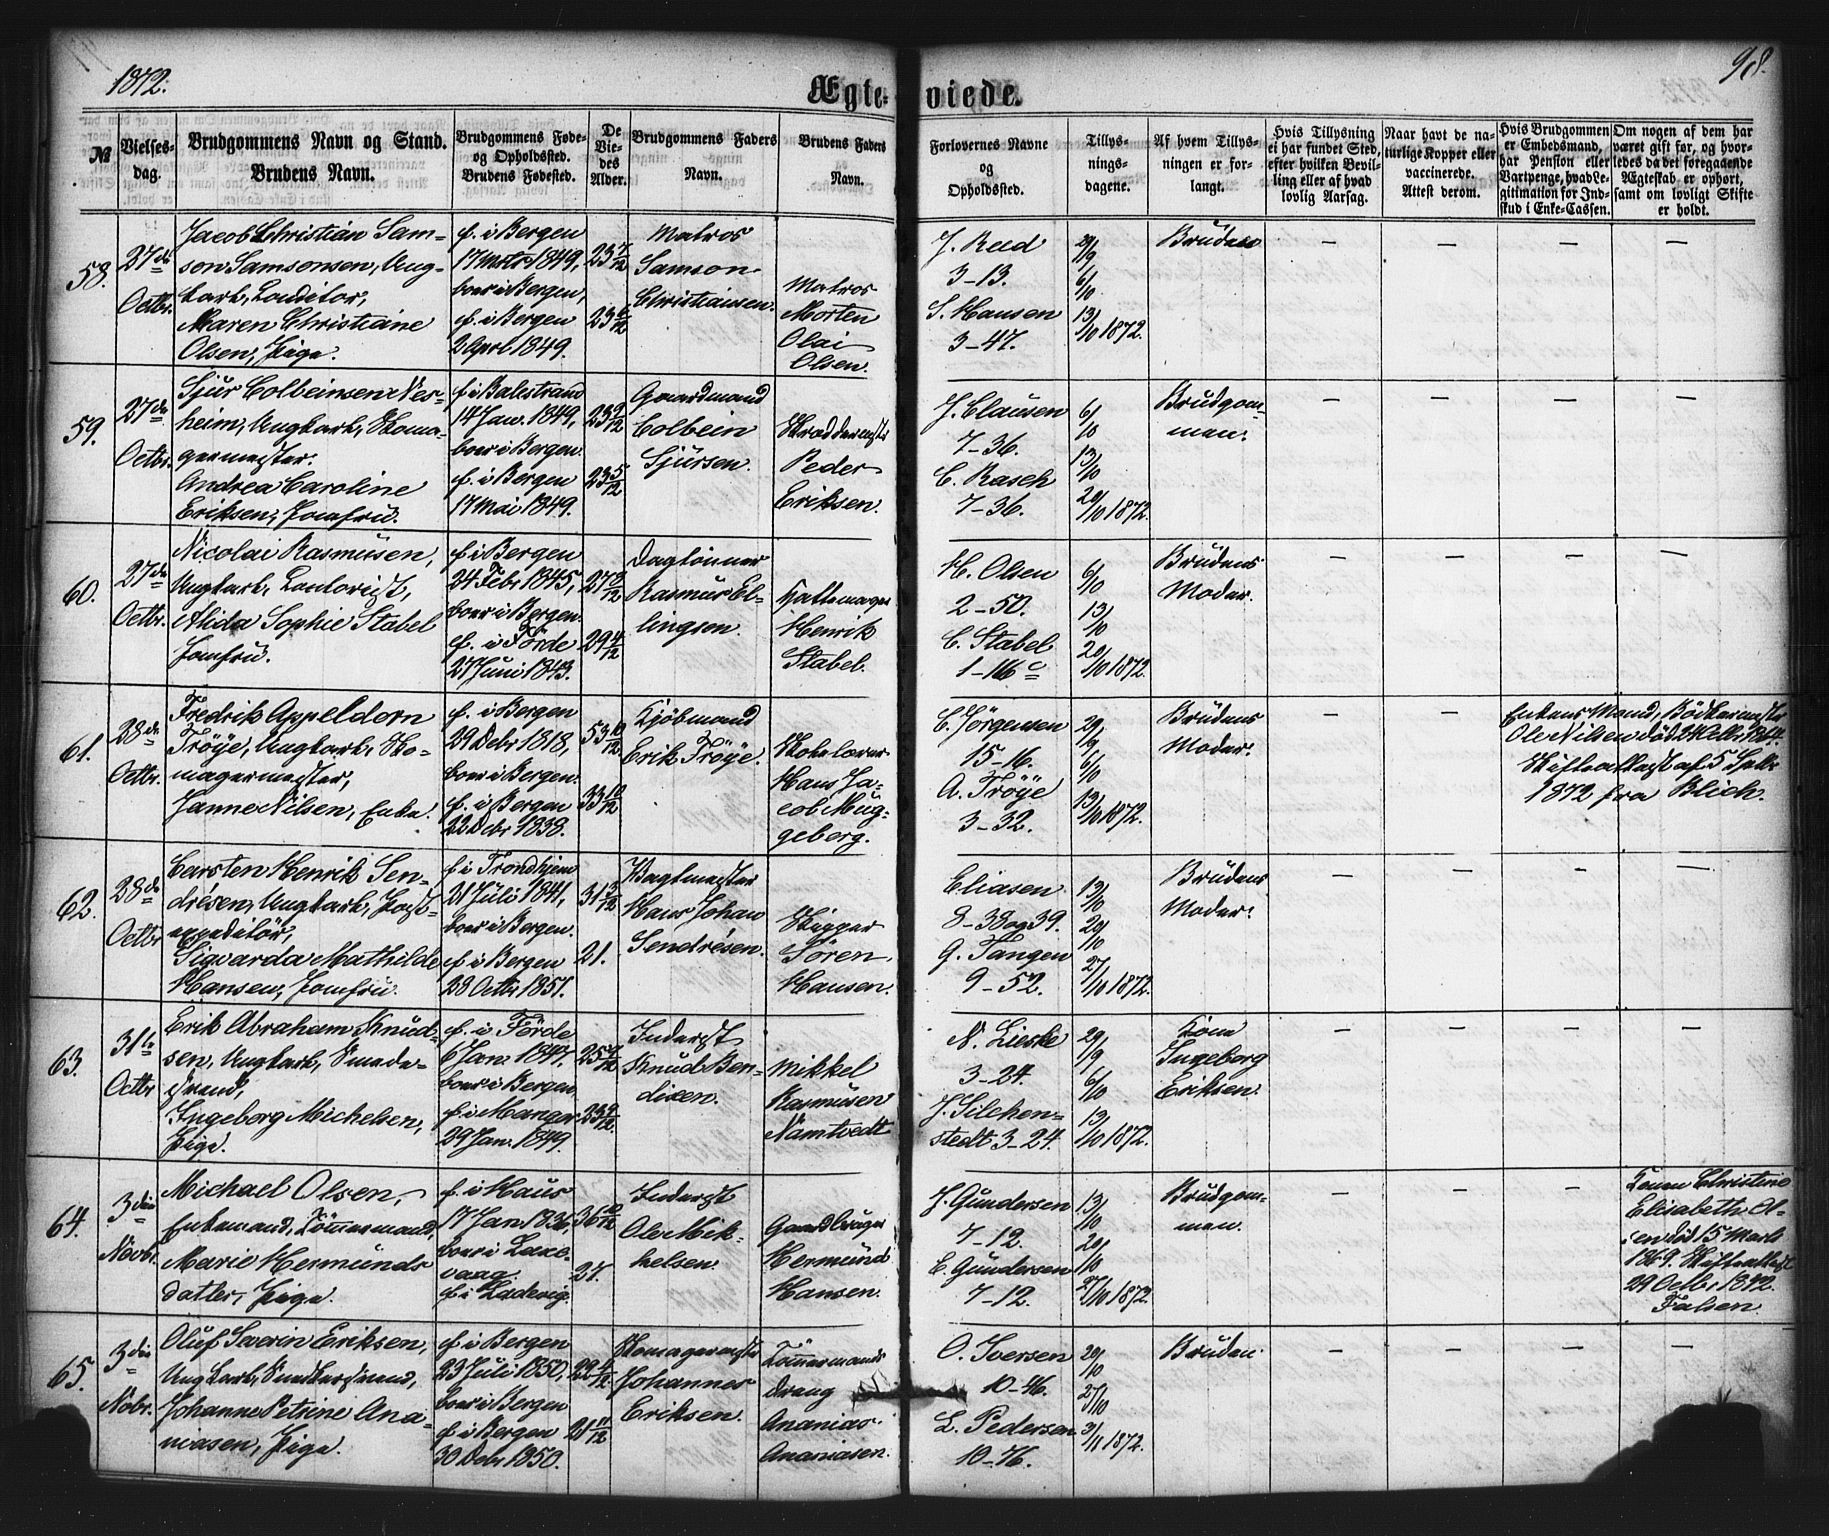 1872.
Ægte-
viede.
98.
№
Vielses-
dag.
Brudgommens Navn og Stand.
Brudens Navn.
Brudgommens Føde-
og Opholdssted.
Brudens Fødested.
De
Vie-
des
Alder.
Brudgommens Faders
Navn.
Brudens Faders
Navn.
Forlovernes Navne
og
Opholdssted.
Tillys-
nings-
dagene.
Af hvem Tillys-
ningen er for-
langt.
Hvis Tillysning
ei har fundet Sted,
efter hvilken Bevil-
ling eller af hvad
lovlig Aarsag.
Naar havt de na-
turlige Kopper eller
vaccinerede.
Attest derom.
Hvis Brudgommen
er Embedsmand,
har Pension eller
Vartpenge, hvad Le-
gitimation for Ind-
skud i Enke-Cassen.
Om nogen af dem har
været gift før, og hvor-
ledes da det foregaaende
Ægteskab er ophørt,
samt om lovligt Skifte
er holdt.
58.
27de
Octbr.
Jacob Christian Sam-
son Samsonsen, Ung-
karl, Conditor,
Maren Christiane
Olsen, Pige.
f. i Bergen
17 Marts 1849,
boer i Bergen,
f. i Bergen
2 April 1849.
23 7/12
23 6/12
Matros
Samson
Christiansen.
Matros
Morten
Olai
Olsen.
J. Reed
3-13.
S. Hansen
3-47.
29/9
6/10
13/10 1872.
Bruden
— — — —
59.
27de
Octbr.
Sjur Colbeinsen Nes-
heim, Ungkarl, Skoma-
germester.
Andrea Caroline
Eriksen, Jomfru.
f. i Balestrand
14 Jan. 1849,
boer i Bergen.
f. i Bergen
17 Mai 1849.
23 9/12
23 5/12
Gaardmand
Colbein
Sjursen.
Skræddermestr
Peder
Eriksen.
J. Clausen
7-36.
C. Rasch
7-36.
6/10
13/10
20/10 1872.
Brudgom-
men.
— — — —
60.
27de
Octbr.
Nicolai Rasmusen,
Ungkarl, Contorist,
Alida Sophie Stabel
Jomfru.
f. i Bergen
24 Febr 1845,
boer i Bergen.
f. i Förde
27 Juni 1843.
27 8/12
29 4/12
Daglönner
Rasmus El-
lingsen.
Hattemager
Henrik
Stabel.
H. Olsen
2-50.
C. Stabel
1-16 c
6/10
13/10
20/10 1872.
Brudens
Moder.
— — — —
61.
28de
Octbr.
Fredrik Appeldorn
Tröye, Ungkarl, Sko-
magermester,
Janne Nilsen, Enke.
f. i Bergen
29 Debr 1818,
boer i Bergen.
f. i Bergen
22 Debr 1838.
53 10/12
33 10/12
Kjöbmand
Erik Tröye.
Skolelærer
Hans Ja-
cob Mug-
geberg.
C. Jörgensen
15-16.
A. Tröye
3-32.
29/9
6/10
13/10 1872.
Brudens
Moder.
— —
Enkens Mand, Bödkermester
Ole Nilsen död 1864.
Skifteattest af 5
1872 fra Blich.
62.
28de
Octbr
Carsten Henrik Sen-
drésen, Ungkarl, Post-
expeditör,
Sigvarda Mathilde
Hansen, Jomfru.
f. i Trondhjem
21 Juli 1841,
boer i Bergen.
f. i Bergen
28 Octbr 1851.
31 3/12
21.
Vagtmester
Hans Johan
Sendrésen.
Skipper
Sören
Hansen.
Eliasen
8-38 og 39.
G. Tangen
9-52.
13/10
20/10
27/10 1872.
Brudens
Moder.
— — — —
63.
31te
Octbr
Erik Abraham Knud-
sen, Ungkarl, Smede-
svend,
Ingeborg Michelsen,
Pige.
f. i Förde
6 Jan. 1847,
boer i Bergen
f. i Manger
29 Jan. 1849.
25 9/12
23 9/12
Inderst
Knud Ben-
dixen.
Mikkel
Rasmusen
Namtvedt
N. Lieske
3-24.
J. Silchen-
stedt 3-24.
29/9
6/10
13/10 1872.
Kone
Ingeborg
Eriksen.
— — — —
64.
3die
Novbr.
Michael Olsen,
Enkemand, Tömmermand,
Marie Hermunds
datter, Pige.
f. i Haus
17 Jan. 1836,
boer i Laxe-
vaag
f. i Ladevig.
36 10/12
27.
Inderst
Ole Mik-
kelsen.
Gaardbruger
Hermund
Hansen.
J. Gundersen
7-12.
C. Gundersen
7-12.
13/10
20/10
27/10 1872.
Brudgom-
men.
— — —
Konen Christine
Elisabeth Ol-
sen död 15 Marts
1869. Skifteattest
29 Octbr. 1872.
Falsen
65.
3die
Nobr.
Oluf Severin Eriksen,
Ungkarl, Snedkersvend,
Johanne Petrine Ana-
niasen, Pige.
f. i Bergen
23 Juli 1850,
boer i Bergen
f. i Bergen
30 Debr 1850.
22 4/12
21 11/12
Skomagermestr
Johannes
Eriksen.
Tömmermands
dreng
Ananias
Ananiasen.
O. Iversen
10-46.
L. Pedersen
10-76.
20/10
27/10
3/11 1872.
Bruden.
— — — —